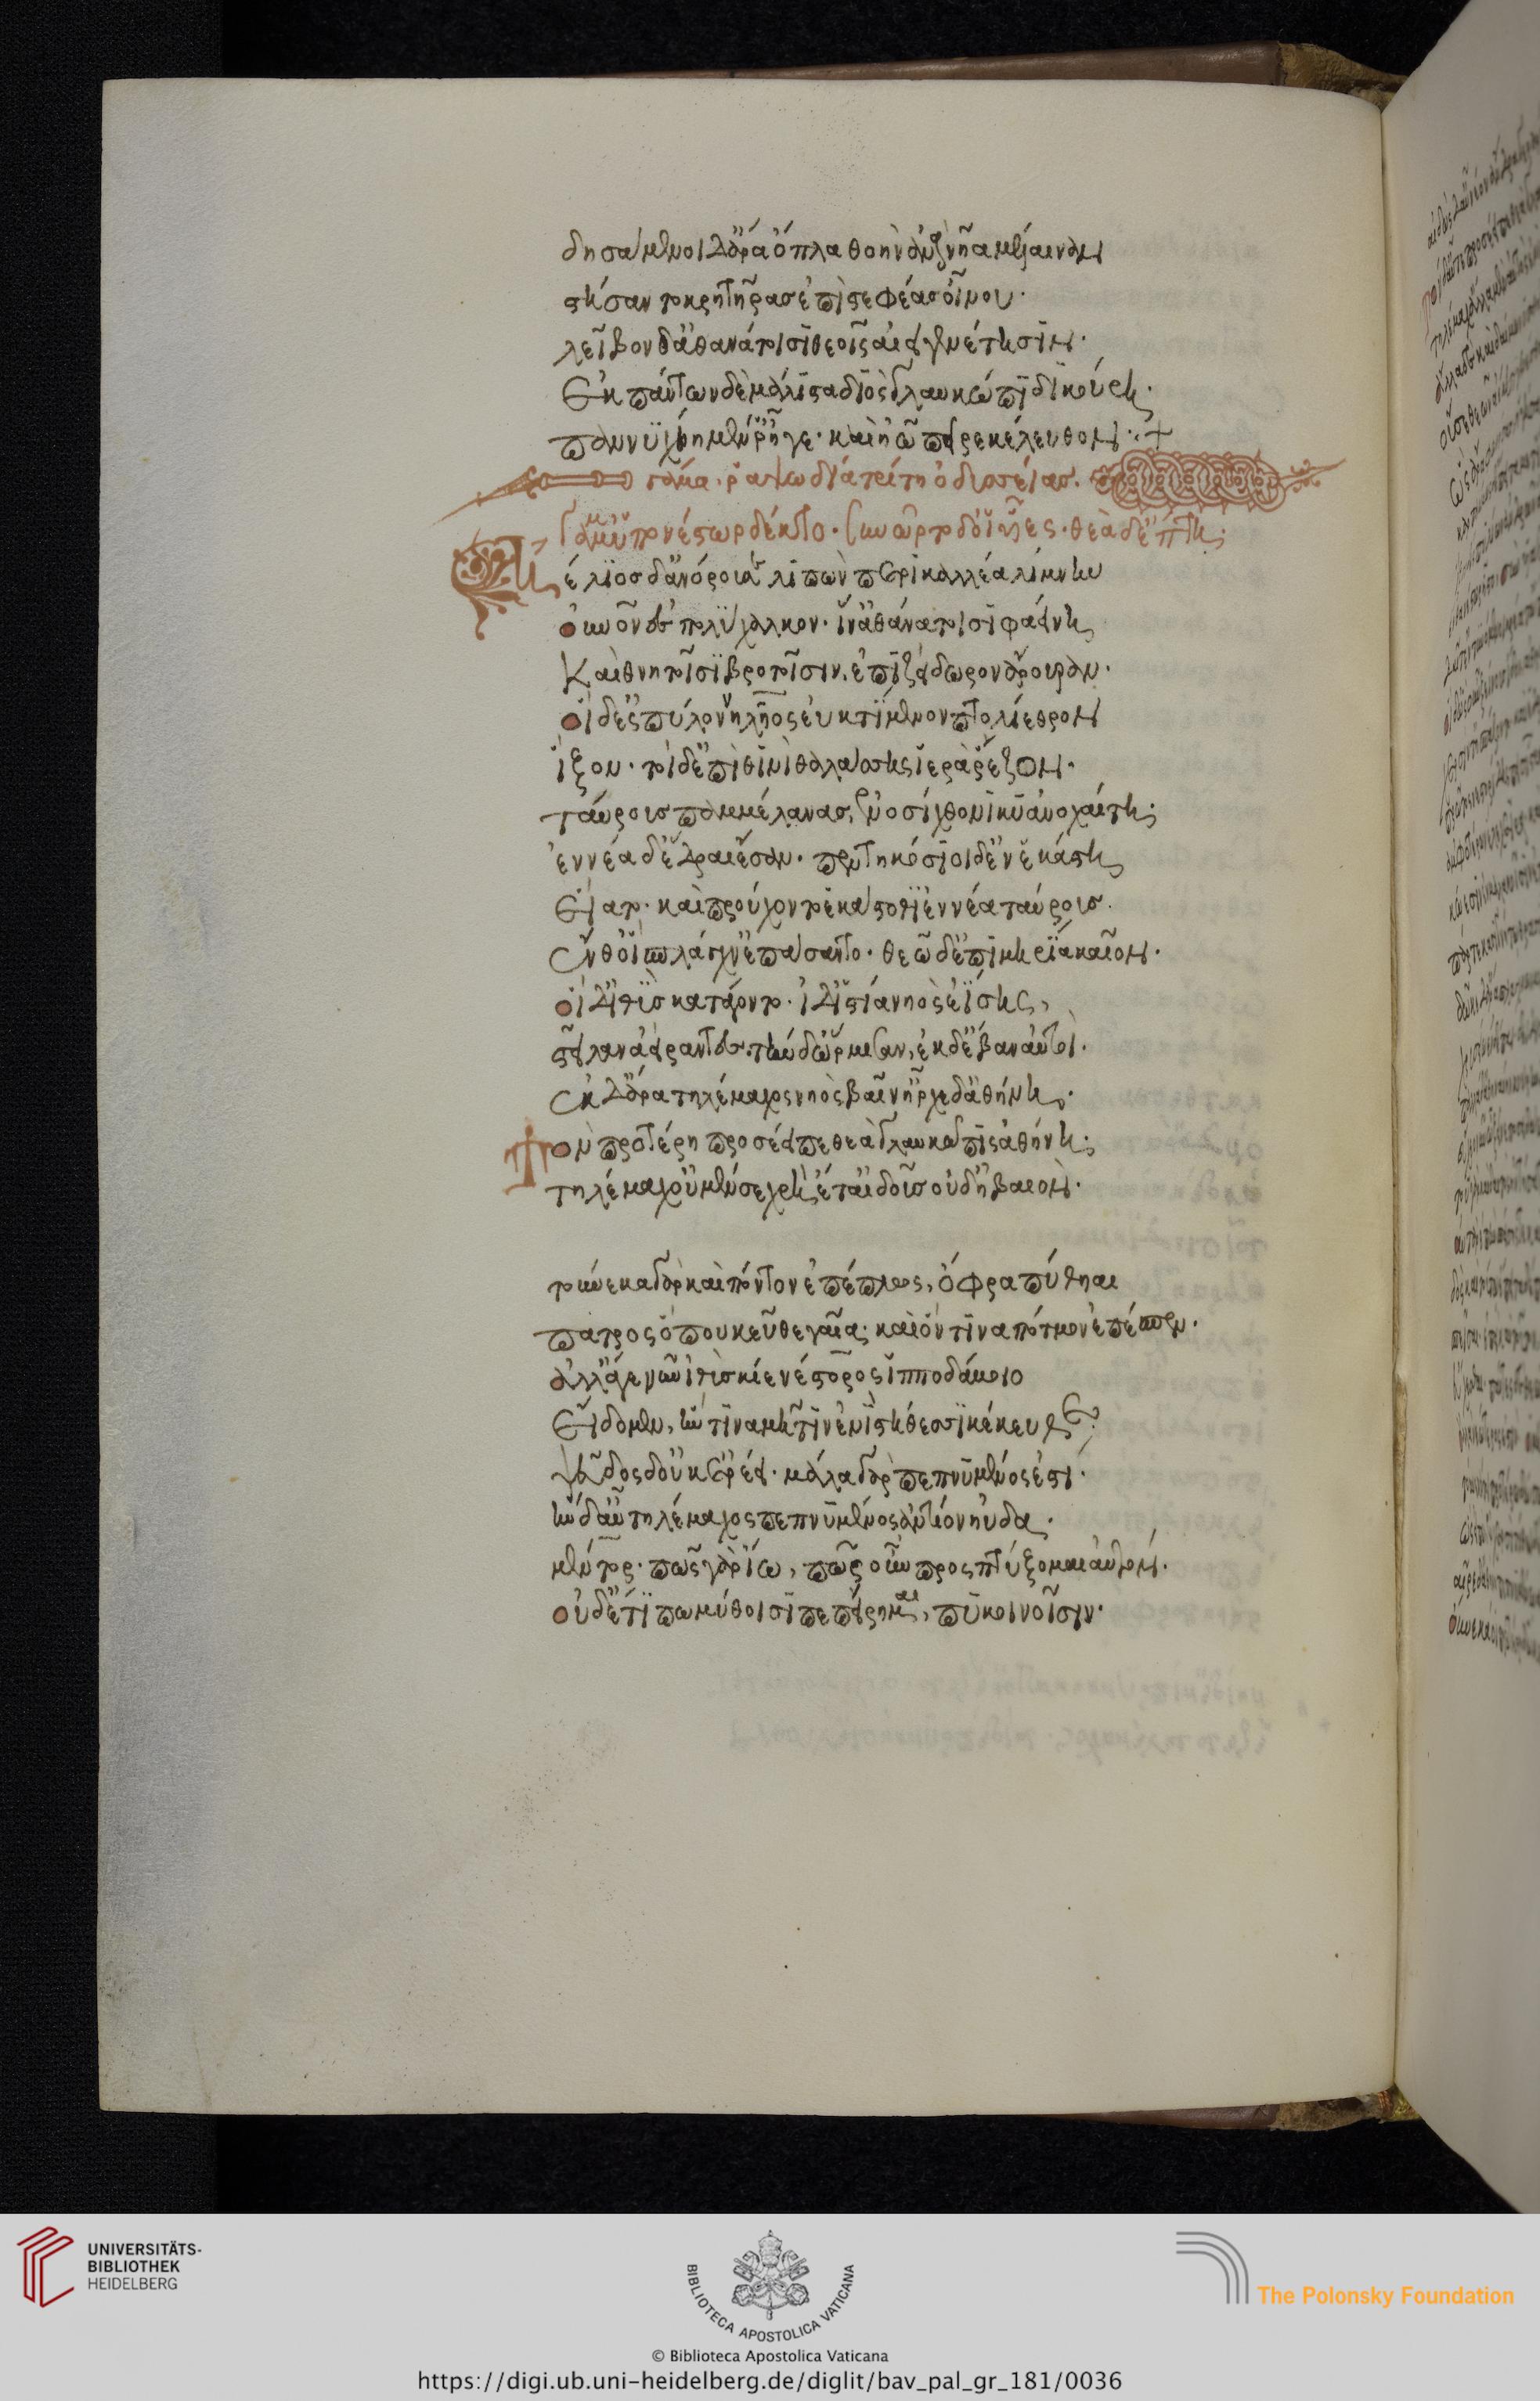 δησάμενοι δ' ἄρα ὅπλα θοὴν ἀνὰ νῆα μέλαιναν
στήσαντο κρητῆρας ἐπιστεφέας οἴνου·
λεῖβον δ' ἀθανάτοισι θεοῖς αἰειγενέτησιν·
ἐκ πάντων δὲ μάλιστα διὸς γλαυκώπιδι κούρη·
παννυχίη μέν ῥ' ἥγε· καὶ ἠῶ πεῖρε κέλευθον·
γάμμα· ῥαψωδία τρίτη ὀδυσσείας·
ἠέλιος δ' ἀνόρουσε λιπὼν περικαλλέα λίμνην
οὐρανὸν ἐς πολύχαλκον· ἵν' ἀθανάτοισι φαείνη
καὶ θνητοῖσι βροτοῖσιν, ἐπὶ ζείδωρον ἄρουραν·
οἱ δὲ πύλον νηλῆος ἐϋκτίμενον πτολίεθρον
ἷξον· τοὶ δ' ἐπὶ θινὶ θαλάσσης ἱερὰ ῥέζον·
ταύρους παμμέλανας, ἐνοσίχθονι κυανοχαίτη·
ἐννέα δ' ἕδραι ἔσαν· πεντηκόσιοι δ' ἐν ἑκάστη
εἵατο· καὶ προύχοντο ἑκάστοθι ἐννέα ταύρους·
ἔνθ' οἱ σπλάγχν' ἐπάσαντο· θεῶ δ' ἐπὶ μηρία καῖον·
οἱ δ' ἰθὺς κατάγοντο· ἰδ' ἱστία νηὸς ἐΐσης,
στεῖλαν ἀείραντες· τὴν δ' ὥρμισαν, ἐκ δ' ἔβαν αὐτοί·
ἐκ δ' ἄρα τηλέμαχος νηὸς βαῖν' ἦρχε δ' ἀθήνη·
τὸν προτέρη προσέειπε θεὰ γλαυκῶπις ἀθήνη·
τηλέμαχ' οὐ μέν σε χρὴ ἔτ' αἰδοῦς οὐδ' ἠβαιόν·
τούνεκα γὰρ καὶ πόντον ἐπέπλως, ὄφρα πύθηαι
πατρὸς ὅπου κεῦθε γαῖα· καὶ ὅν τινα πότμον ἐπέσπεν·
ἀλλ' ἄγε νῦν ἰθὺς κίε νέστορος ἱπποδάμοιο
εἴδομεν, ἥν τινα μῆτιν ἐνὶ στήθεσσι κέκευθε·
ψεῦδος δ' οὐκ ἐρέει· μάλα γὰρ πεπνυμένος ἐστί·
τὴν δ' αὖ τηλέμαχος πεπνυμένος ἀντίον ηὔδα·
μέντορ· πῶς γὰρ ἴω, πῶς οὖν προσπτύξομαι αὐτόν·
οὐδέ τι πω μύθοισι πεπείρημαι, πυκινοῖσιν·
UNIVERSITÄTS-
BIBLIOTHEK
HEIDELBERG
BIBLIOTECA APOSTOLICA VATICANA
The Polonsky Foundation
© Biblioteca Apostolica Vaticana
https://digi.ub.uni-heidelberg.de/diglit/bav_pal_gr_181/0036